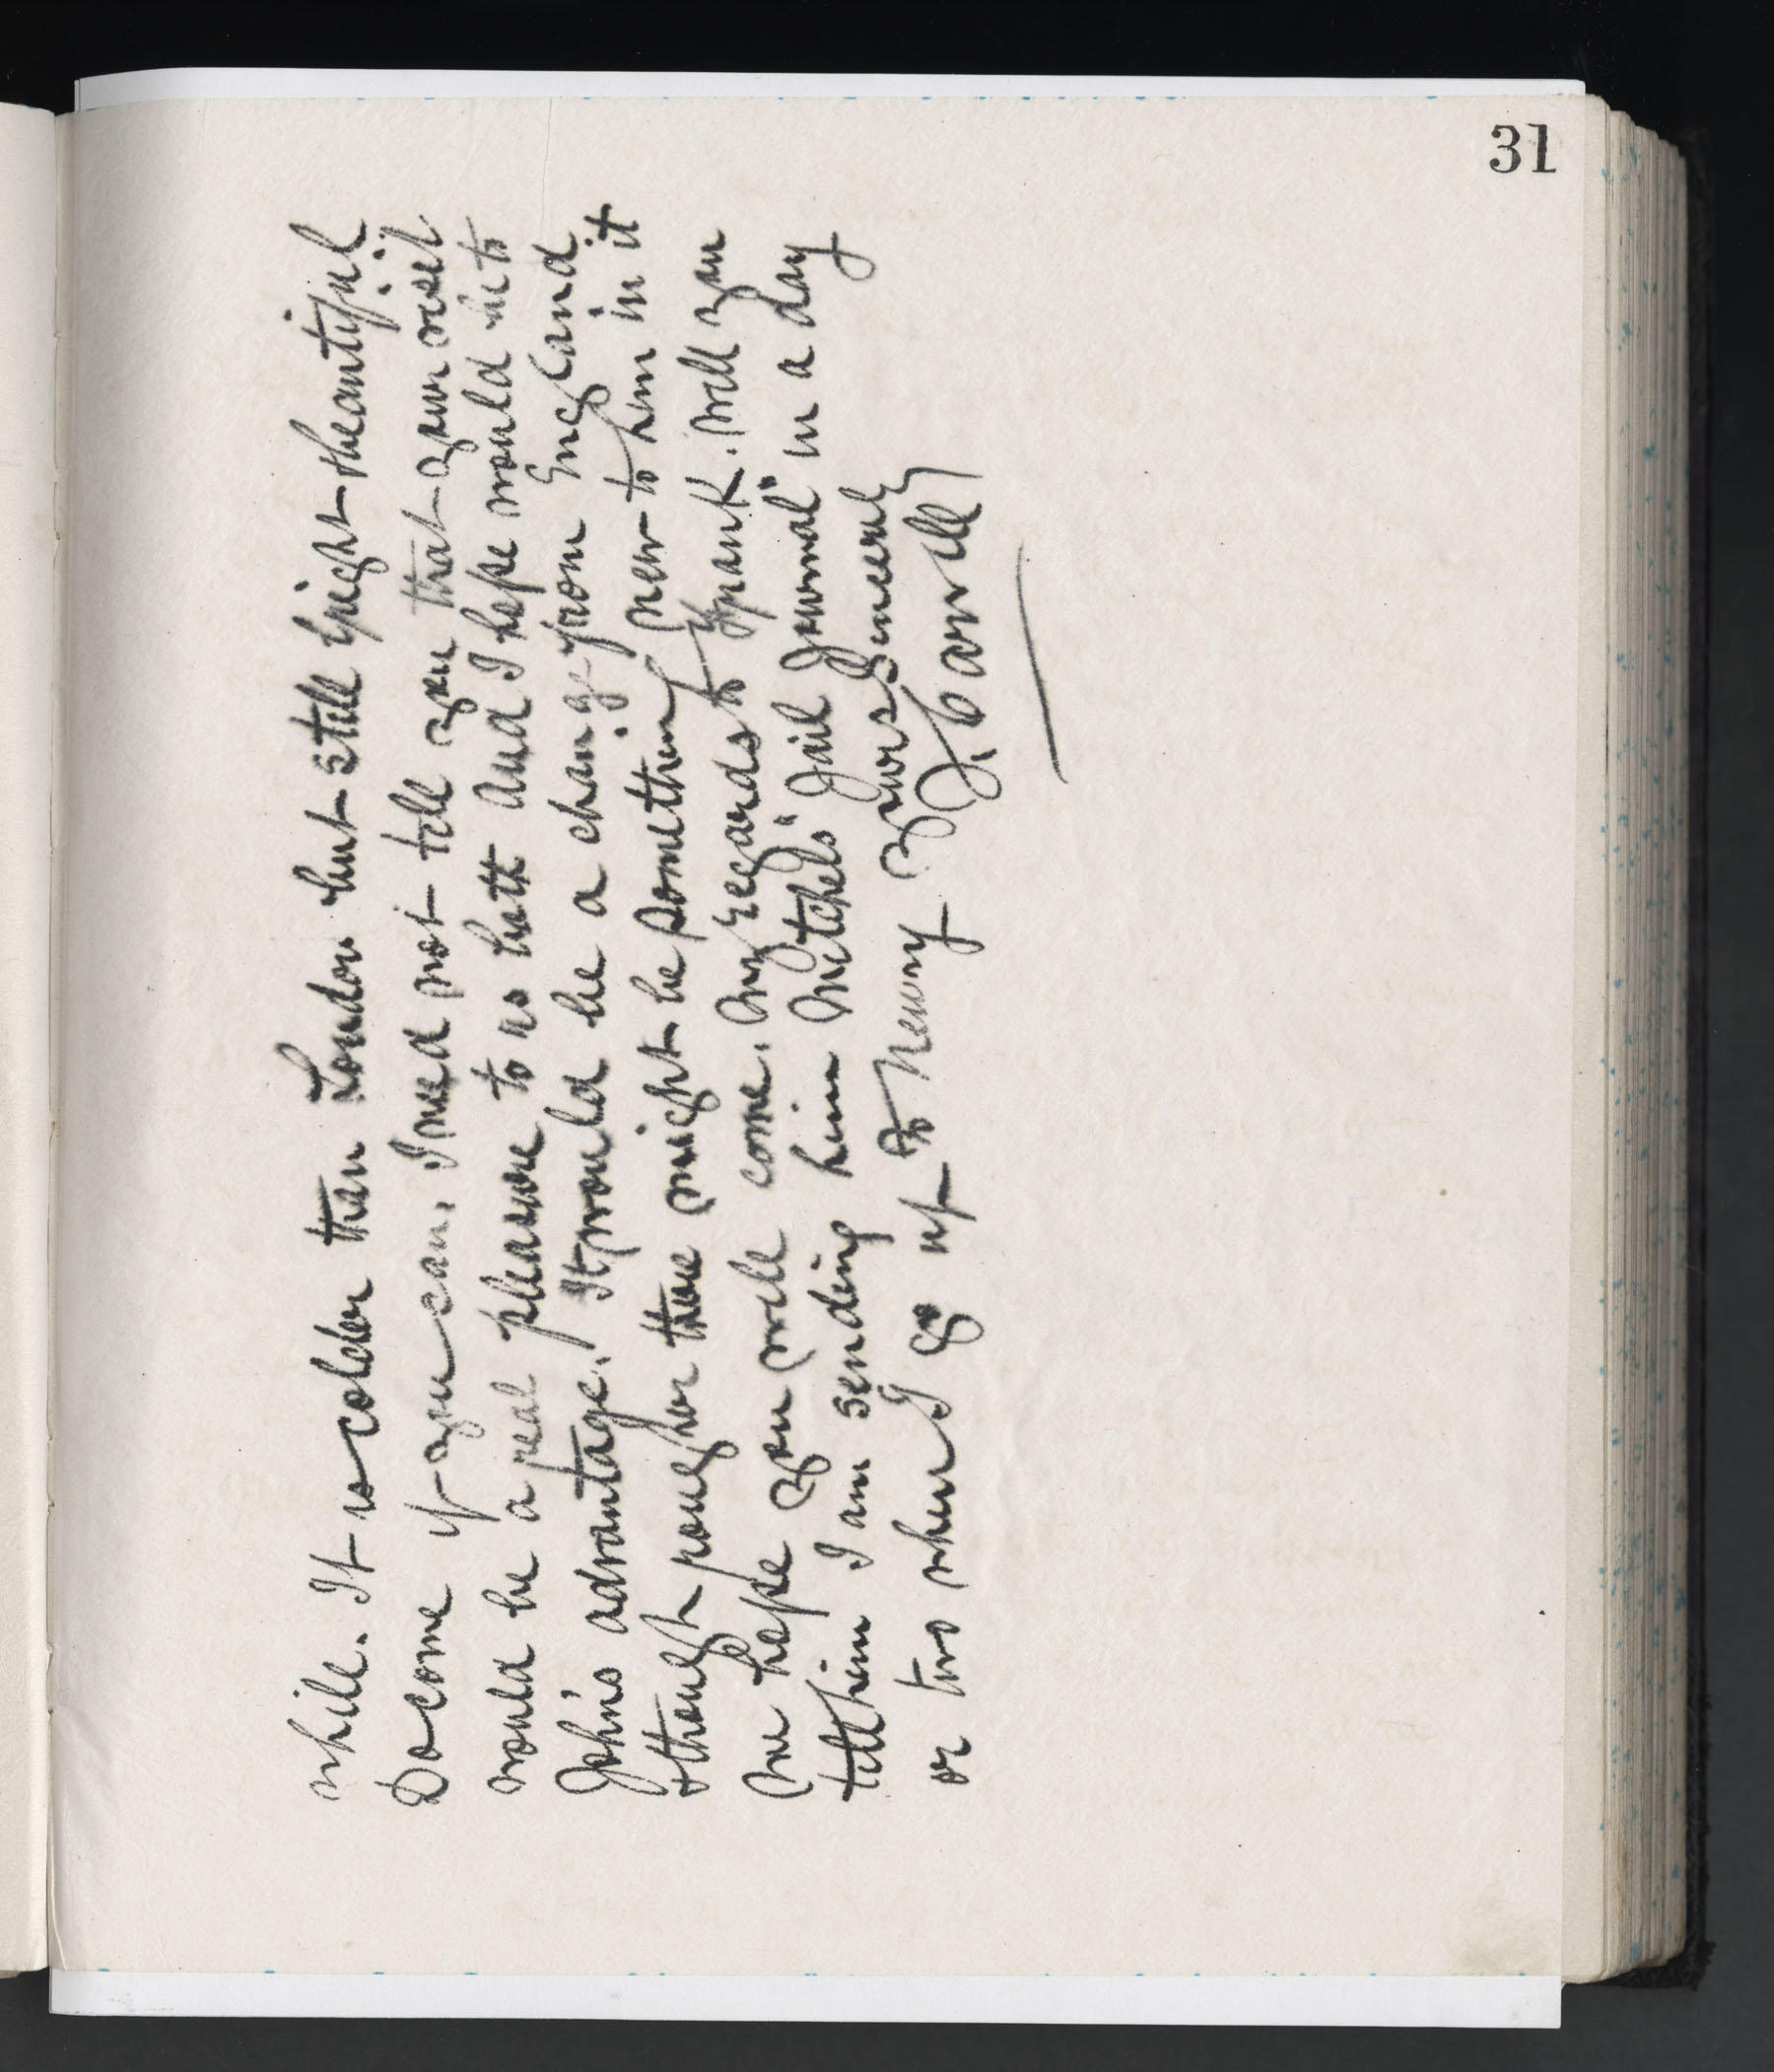 31
while. It is colder than London but still bright & beautiful
Do come if you can. I need not tell you that your visit
would be a real pleasure to us both and I hope would be to
John's advantage. It would be a change from England
& though rougher there might be something new to him in it
We hope you will come. My regards to Frank. Will you
tell him I am sending him Mitchels "Jail Journal" in a day
or two when I go up to Newry Yours Sincerely